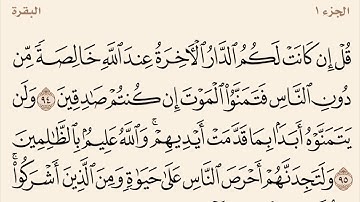 الجزء ١
البقرة
قُلْ إِن كَانَتْ لَكُمُ ٱلدَّارُ ٱلْأَخِرَةُ عِندَ ٱللَّهِ خَالِصَةً مِّن
دُونِ ٱلنَّاسِ فَتَمَنَّوُا۟ ٱلْمَوْتَ إِن كُنتُمْ صَٰدِقِينَ ٩٤ وَلَن
يَتَمَنَّوْهُ أَبَدًۢا بِمَا قَدَّمَتْ أَيْدِيهِمْ ۚ وَٱللَّهُ عَلِيمٌۢ بِٱلظَّٰلِمِينَ
٩٥ وَلَتَجِدَنَّهُمْ أَحْرَصَ ٱلنَّاسِ عَلَىٰ حَيَوٰةٍ وَمِنَ ٱلَّذِينَ أَشْرَكُوا۟ ۚ